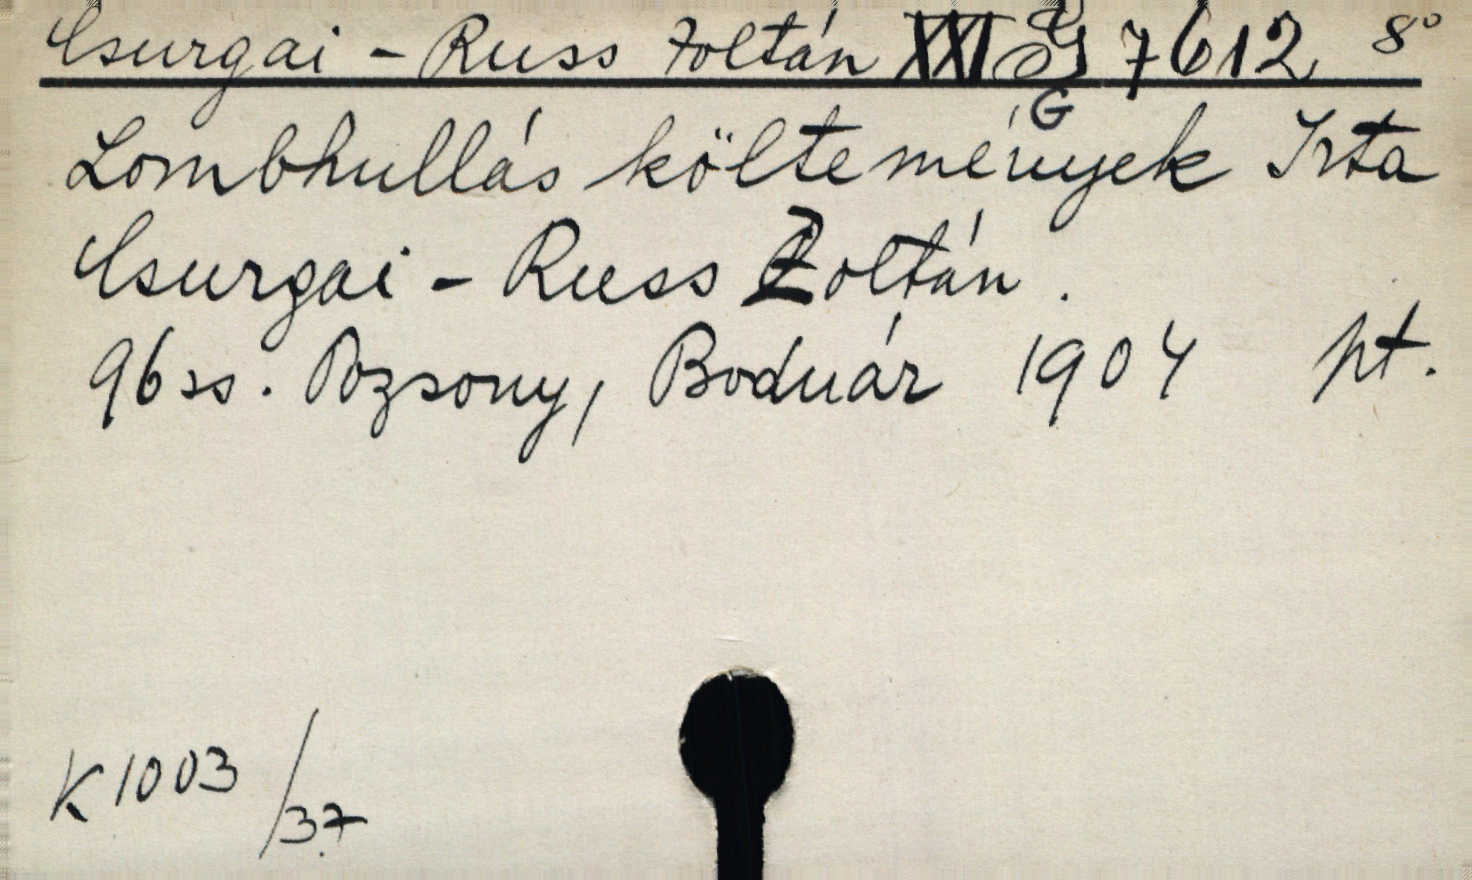 Csurgai - Russ Zoltán XXI G 7612 8°
Lombhullás költemények Irta
Csurgai - Russ Zoltán.
96 ss. Pozsony, Bodnár 1904 pt.
K 1003/37.